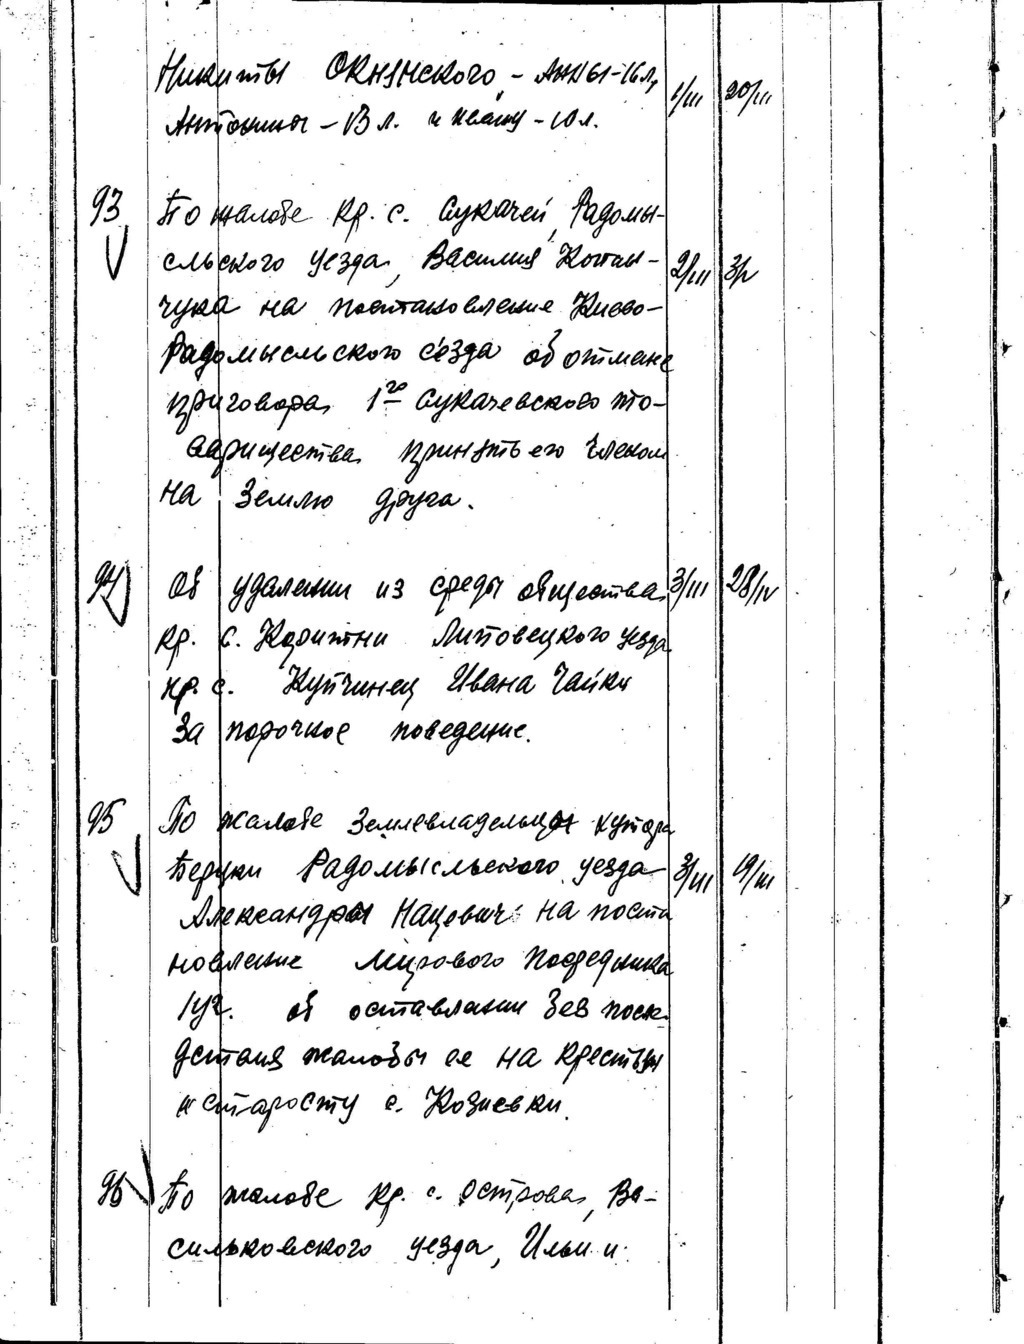 Никиты Окнянского, - Анны-16 л, 1/III 20/III
Антонины - 13 л. и Ивану - 10 л.
93 По жалобе кр. с. Сукачей, Радомы-
сльского уезда, Василия 2/III 3/V
чука на постановление Киево-
Радомысльского с'езда об отмене
приговора 1го Сукачевского то-
варищества принять его членом
на землю друга.
94 Об удалении из среды общества 3/III 28/IV
кр. с. Липовецкого уезда
кр. с. Купчинец Ивана Чайки
за порочное поведение.
95 По жалобе землевладельцы хутора
Радомысльского уезда 3/III 19/III
Александры Нацевич на поста
новление мирового посредника
1 уч. об оставлении без посл
дствия жалобы ее на крестьян
и старосту с. Козиевки.
96 По жалобе кр. с. Острова, Ва-
сильковского уезда, Ильи и